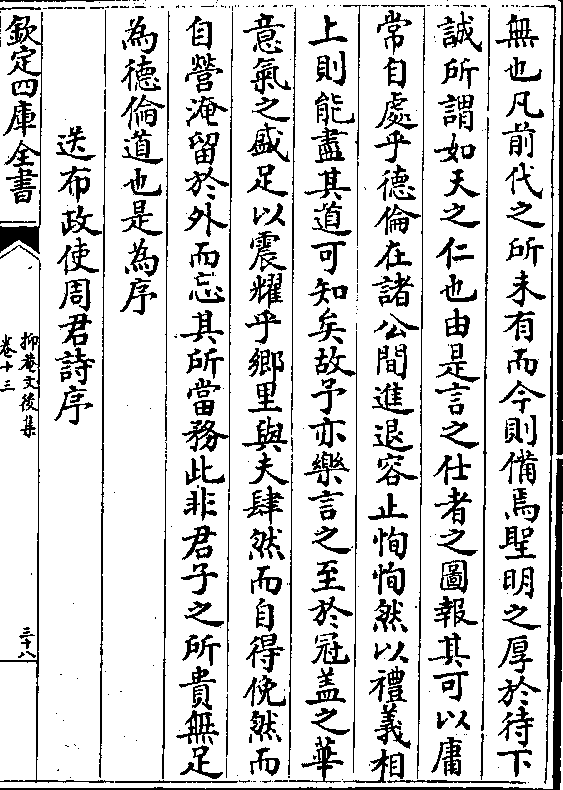 無也凡前代之所未有而今則備焉聖明之厚於待下
誠所謂如天之仁也由是言之仕者之圖報其可以庸
常自處乎德倫在諸公間進退容止恂恂然以禮義相
上則能盡其道可知矣故予亦樂言之至於冠盖之華
意氣之盛足以震耀乎鄉里與夫肆然而自得俛然而
自營淹留於外而忘其所當務此非君子之所貴無足
為德倫道也是為序
送布政使周君詩序
欽定四庫全書
抑菴文後集
卷十三
三十八